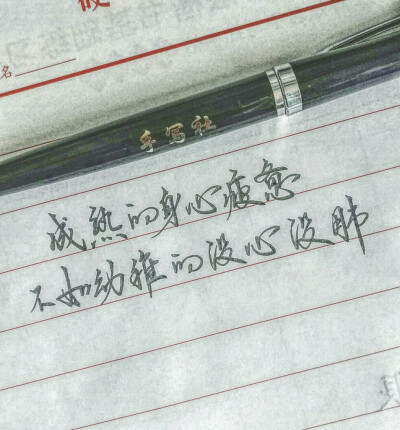 名
手写社
成熟的身心疲惫
不如幼稚的没心没肺